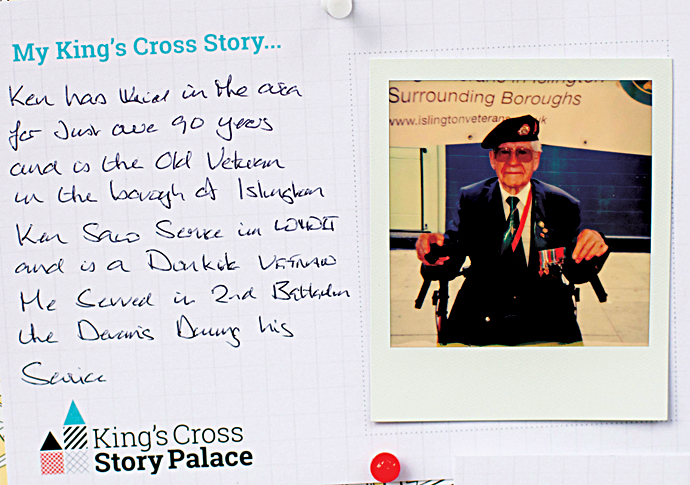 My King's Cross Story...
Ken has lived in the area
for Just over 90 years
and is the Old Veteran
in the borogh of Islington
Ken Saw Service in WWII
and is a Dunkirk VETRAN
He Served in 2nd Battalion
the Devons During his
Service
King's Cross
Story Palace
Veterans in Islington
Surrounding Boroughs
www.islingtonveterans